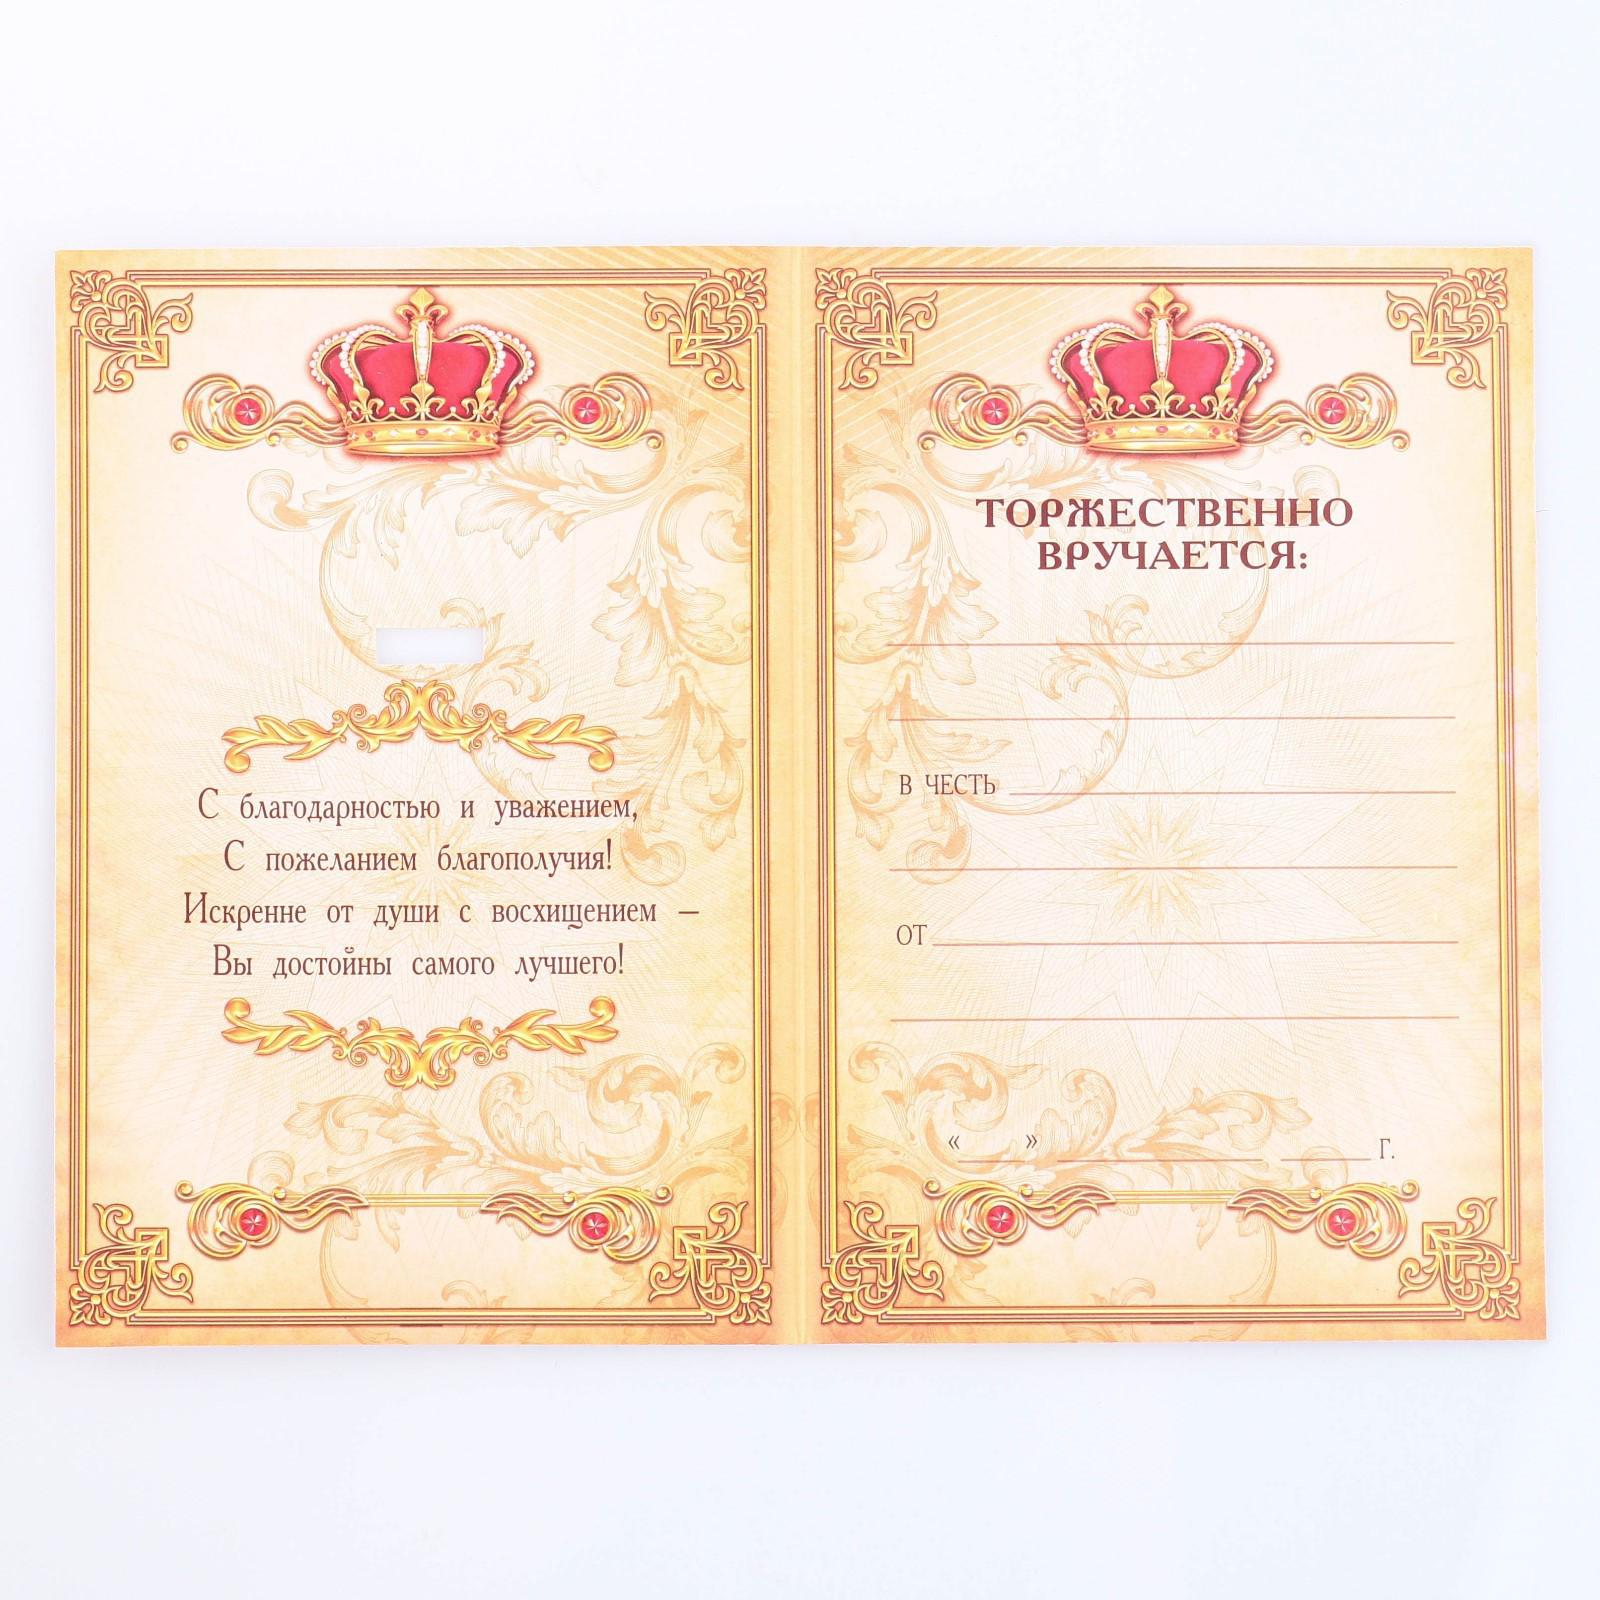 С благодарностью и уважением,
С пожеланием благополучия!
Искренне от души с восхищением –
Вы достойны самого лучшего!
ТОРЖЕСТВЕННО
ВРУЧАЕТСЯ:
В ЧЕСТЬ
ОТ
« » г.